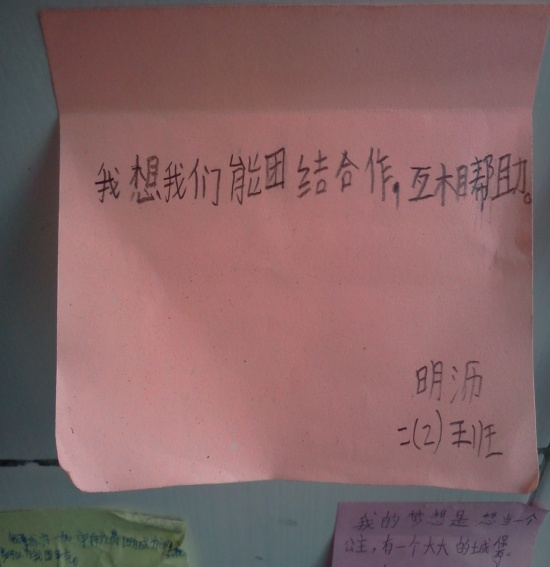 我想我们能团结合作，互相帮助。
明沥
二(2)班
我的梦想是想当一个
公主，有一个大大的城堡